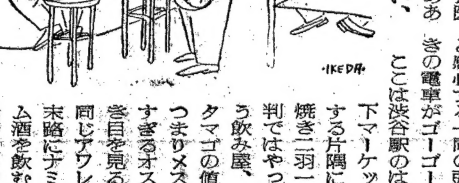 一同の頭
きの電車がゴーゴー
ここは渋谷駅のは
下マーケッ
する片隅に
焼き二羽一
判ではやっ
う飲み屋、
タマゴの値
つまりメス
すぎるオス
き目を見る
同じアワレ
末路にナミ
ム酒を飲む
·IKEDA·